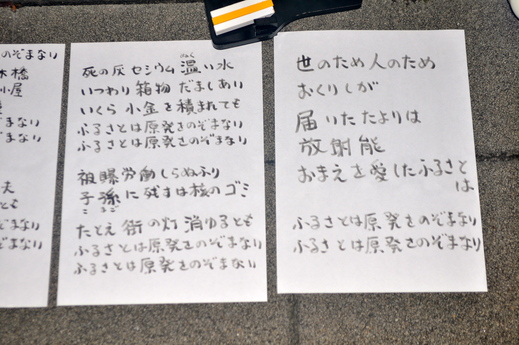 のぞまない
木橋
小屋
まない
まない
夫
とも
まない
まない
死の灰セシウム温い水
ぬく
いつわり箱物だましあい
いくら小金を積まれても
ふるさとは原発をのぞまない
ふるさとは原発をのぞまない
被曝労働しらぬふり
子孫に残すは核のゴミ
たとえ街の灯消ゆるとも
ふるさとは原発をのぞまない
ふるさとは原発をのぞまない
世のため人のため
おくりしが
届いたたよりは
放射能
おまえを愛したふるさと
は
ふるさとは原発をのぞまない
ふるさとは原発をのぞまない